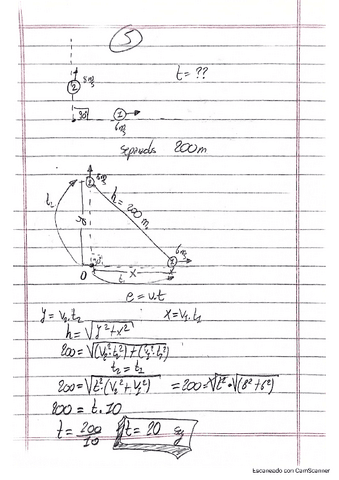 5
t = ??
8m/s
2
90°
1
6m/s
separados 200m
8m/s
2
h = 200 m.
t₂
y
6m/s
1
90°
O
x
t₁
e = v.t
y = v₂.t₂ x = v₁.t₁
h = √y²+x²
200 = √(v₂².t₂²)+(v₁².t₁²)
t₂ = t₁
200 = √t².(v₂²+v₁²) = 200 = √t² . √(8²+6²)
200 = t.10
t = 200/10 t = 20 sg
Escaneado con CamScanner